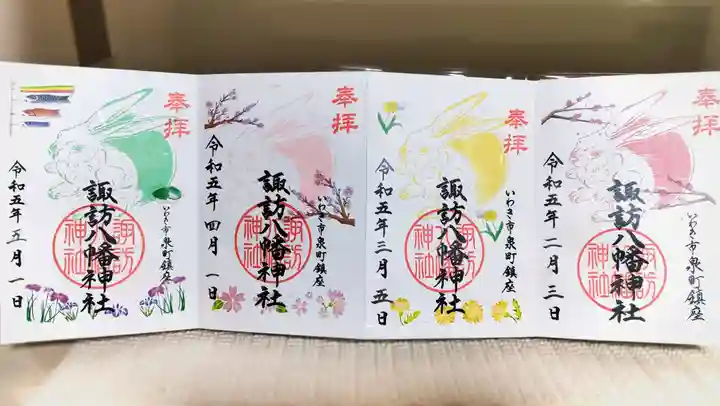 奉拝
諏訪八幡神社
諏訪神社
いわき市泉町鎮座
令和五年五月一日
奉拝
諏訪八幡神社
諏訪神社
いわき市泉町鎮座
令和五年四月一日
奉拝
諏訪八幡神社
諏訪神社
いわき市泉町鎮座
令和五年三月五日
奉拝
諏訪八幡神社
諏訪神社
いわき市泉町鎮座
令和五年二月三日